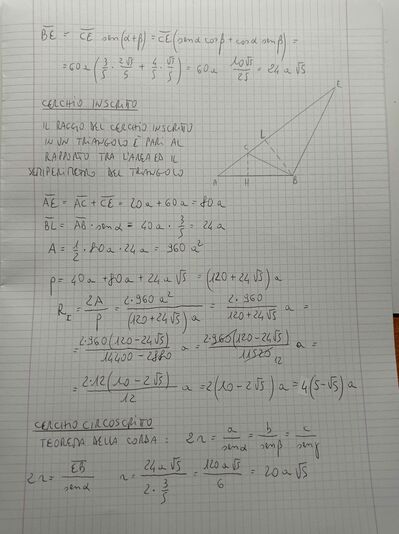 BE = CE sen(α+β) = CE (senα cosβ + cosα senβ) =
= 60a (3/5 · 2√5/5 + 4/5 · √5/5) = 60a 10√5/25 = 24a√5
CERCHIO INSCRITTO
IL RAGGIO DEL CERCHIO INSCRITTO
IN UN TRIANGOLO È PARI AL
RAPPORTO TRA L'AREA ED IL
SEMIPERIMETRO DEL TRIANGOLO
E
L
C
A H B
AE = AC + CE = 20a + 60a = 80a
BL = AB · senα = 40a · 3/5 = 24a
A = 1/2 · 80a · 24a = 960a²
p = 40a + 80a + 24a√5 = (120 + 24√5) a
R_I = 2A/p = 2·960a²/(120+24√5)a = 2·960/(120+24√5) a =
= 2·960(120-24√5)/(14400-2880) a = 2·960(120-24√5)/11520 a =
12
= 2·12(10-2√5)/12 a = 2(10-2√5) a = 4(5-√5) a
CERCHIO CIRCOSCRITTO
TEOREMA DELLA CORDA: 2r = a/senα = b/senβ = c/senγ
2r = EB/senα r = 24a√5/(2·3/5) = 120a√5/6 = 20a√5